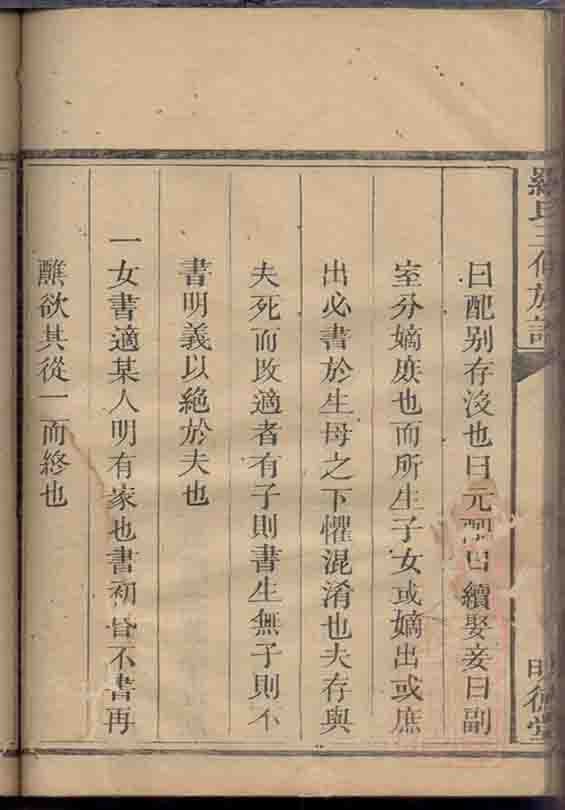 羅氏三修族譜
明德堂
曰配別存沒也曰元配曰續娶妾曰副
室分嫡庶也而所生子女或嫡出或庶
出必書於生母之下懼混淆也夫存與
夫死而改適者有子則書生無子則不
書明義以絕於夫也
一女書適某人明有家也書初昏不書再
醮欲其從一而終也